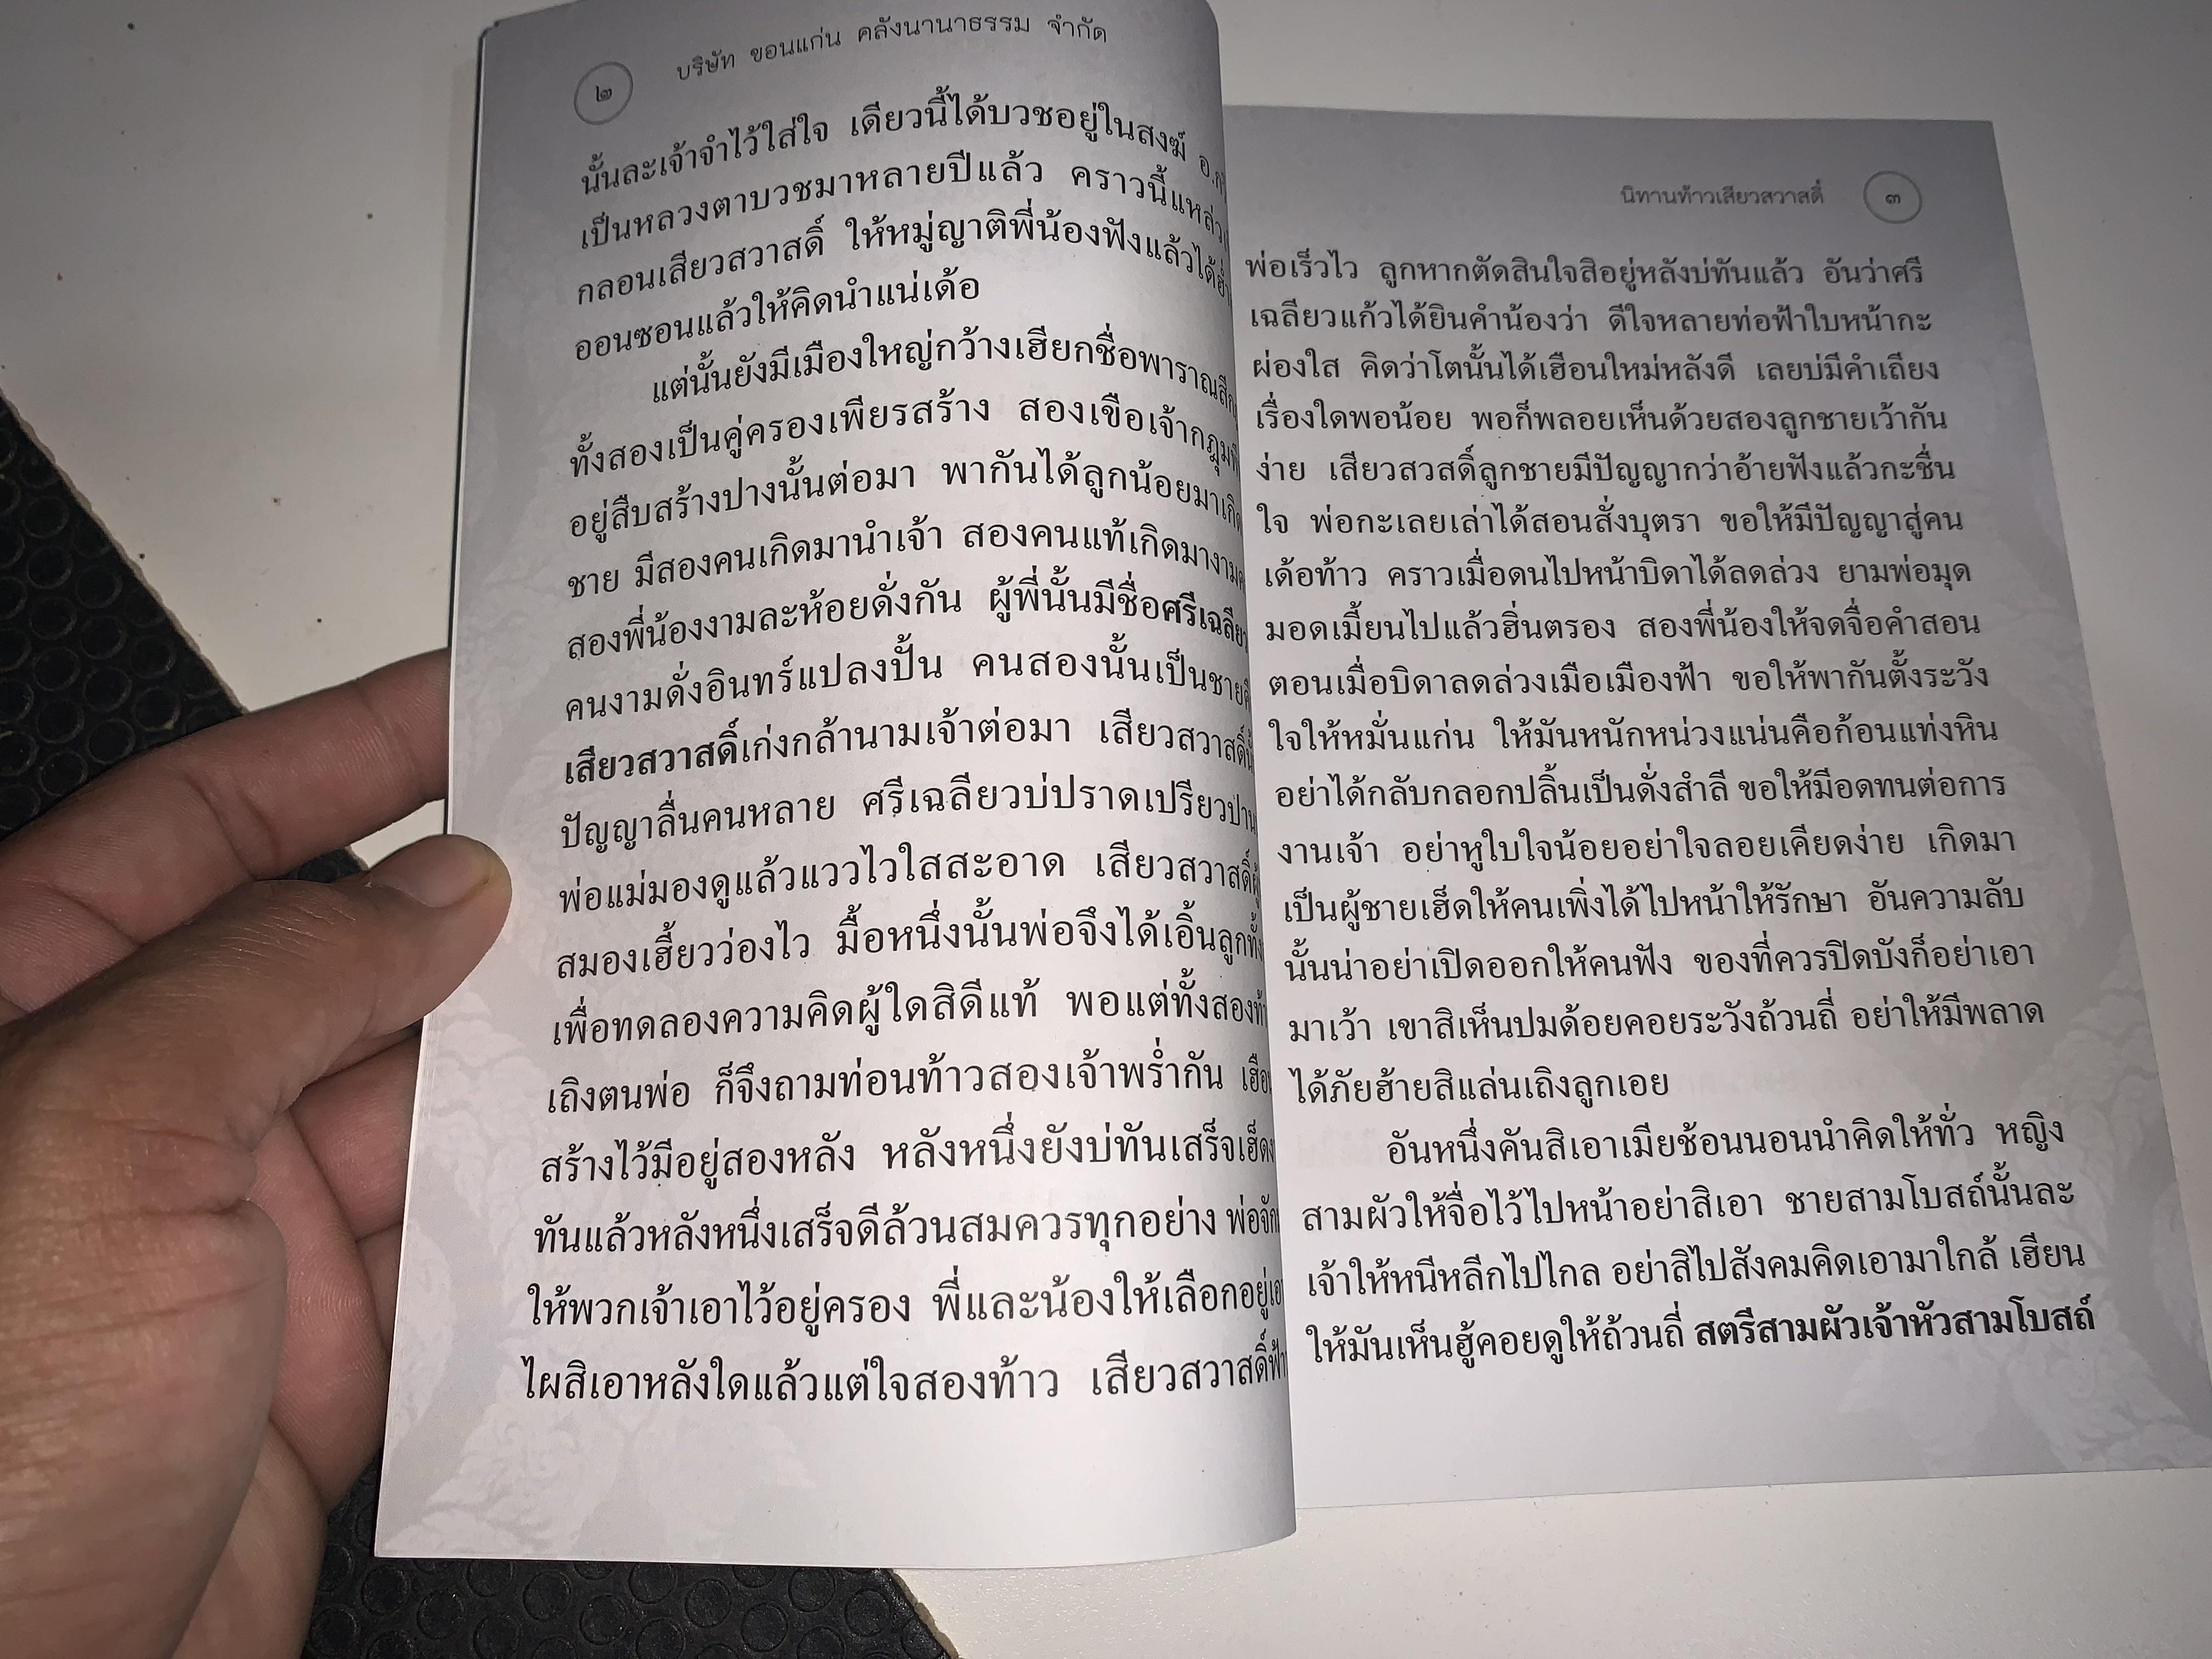 ๒
บริษัท ขอนแก่น คลังนานาธรรม จำกัด
นั้นละเจ้าจำไว้ใส่ใจ เดียวนี้ได้บวชอยู่ในสงฆ์
เป็นหลวงตาบวชมาหลายปีแล้ว คราวนี้แหล่ว
กลอนเสียวสวาสดิ์ ให้หมู่ญาติพี่น้องฟังแล้วได้
ออนซอนแล้วให้คิดนำแน่เด้อ
แต่นั้นยังมีเมืองใหญ่กว้างเฮียกชื่อพาราณสี
ทั้งสองเป็นคู่ครองเพียรสร้าง สองเขือเจ้า
อยู่สืบสร้างปางนั้นต่อมา พากันได้ลูกน้อยมา
ชาย มีสองคนเกิดมานำเจ้า สองคนแท้เกิดมางาม
สองพี่น้องงามละห้อยดั่งกัน ผู้พี่นั้นมีชื่อศรีเฉลียว
คนงามดั่งอินทร์แปลงปั้น คนสองนั้นเป็นชาย
เสียวสวาสดิ์เก่งกล้านามเจ้าต่อมา เสียวสวาสดิ์
ปัญญาลื่นคนหลาย ศรีเฉลียวบ่ปราดเปรียว
พ่อแม่มองดูแล้วแววไวใสสะอาด เสียวสวาสดิ์
สมองเฮี้ยวว่องไว มื้อหนึ่งนั้นพ่อจึงได้เอิ้นลูกทั้ง
เพื่อทดลองความคิดผู้ใดสิดีแท้ พอแต่ทั้งสอง
เถิงตนพ่อ ก็จึงถามท่อนท้าวสองเจ้าพร่ำกัน
สร้างไว้มีอยู่สองหลัง หลังหนึ่งยังบ่ทันเสร็จ
ทันแล้วหลังหนึ่งเสร็จดีล้วนสมควรทุกอย่าง
ให้พวกเจ้าเอาไว้อยู่ครอง พี่และน้องให้เลือกอยู่
ไผสิเอาหลังใดแล้วแต่ใจสองท้าว เสียวสวาสดิ์
นิทานท้าวเสียวสวาสดิ์ ๓
พ่อเร็วไว ลูกหากตัดสินใจสิอยู่หลังบ่ทันแล้ว อันว่าศรี
เฉลียวแก้วได้ยินคำน้องว่า ดีใจหลายท่อฟ้าใบหน้ากะ
ผ่องใส คิดว่าโตนั้นได้เฮือนใหม่หลังดี เลยบ่มีคำเถียง
เรื่องใดพอน้อย พอก็พลอยเห็นด้วยสองลูกชายเว้ากัน
ง่าย เสียวสวสดิ์ลูกชายมีปัญญากว่าอ้ายฟังแล้วกะชื่น
ใจ พ่อกะเลยเล่าได้สอนสั่งบุตรา ขอให้มีปัญญาสู่คน
เด้อท้าว คราวเมื่อดนไปหน้าบิดาได้ลดล่วง ยามพ่อมุด
มอดเมี้ยนไปแล้วฮิ่นตรอง สองพี่น้องให้จดจื่อคำสอน
ตอนเมื่อบิดาลดล่วงเมือเมืองฟ้า ขอให้พากันตั้งระวัง
ใจให้หมั่นแก่น ให้มันหนักหน่วงแน่นคือก้อนแท่งหิน
อย่าได้กลับกลอกปลิ้นเป็นดั่งสำลี ขอให้มีอดทนต่อการ
งานเจ้า อย่าหูใบใจน้อยอย่าใจลอยเคียดง่าย เกิดมา
เป็นผู้ชายเฮ็ดให้คนเพิ่งได้ไปหน้าให้รักษา อันความลับ
นั้นน่าอย่าเปิดออกให้คนฟัง ของที่ควรปิดบังก็อย่าเอา
มาเว้า เขาสิเห็นปมด้อยคอยระวังถ้วนถี่ อย่าให้มีพลาด
ได้ภัยฮ้ายสิแล่นเถิงลูกเอย
อันหนึ่งคันสิเอาเมียช้อนนอนนำคิดให้ทั่ว หญิง
สามผัวให้จื่อไว้ไปหน้าอย่าสิเอา ชายสามโบสถ์นั้นละ
เจ้าให้หนีหลีกไปไกล อย่าสิไปสังคมคิดเอามาใกล้ เฮียน
ให้มันเห็นฮู้คอยดูให้ถ้วนถี่ สตรีสามผัวเจ้าหัวสามโบสถ์